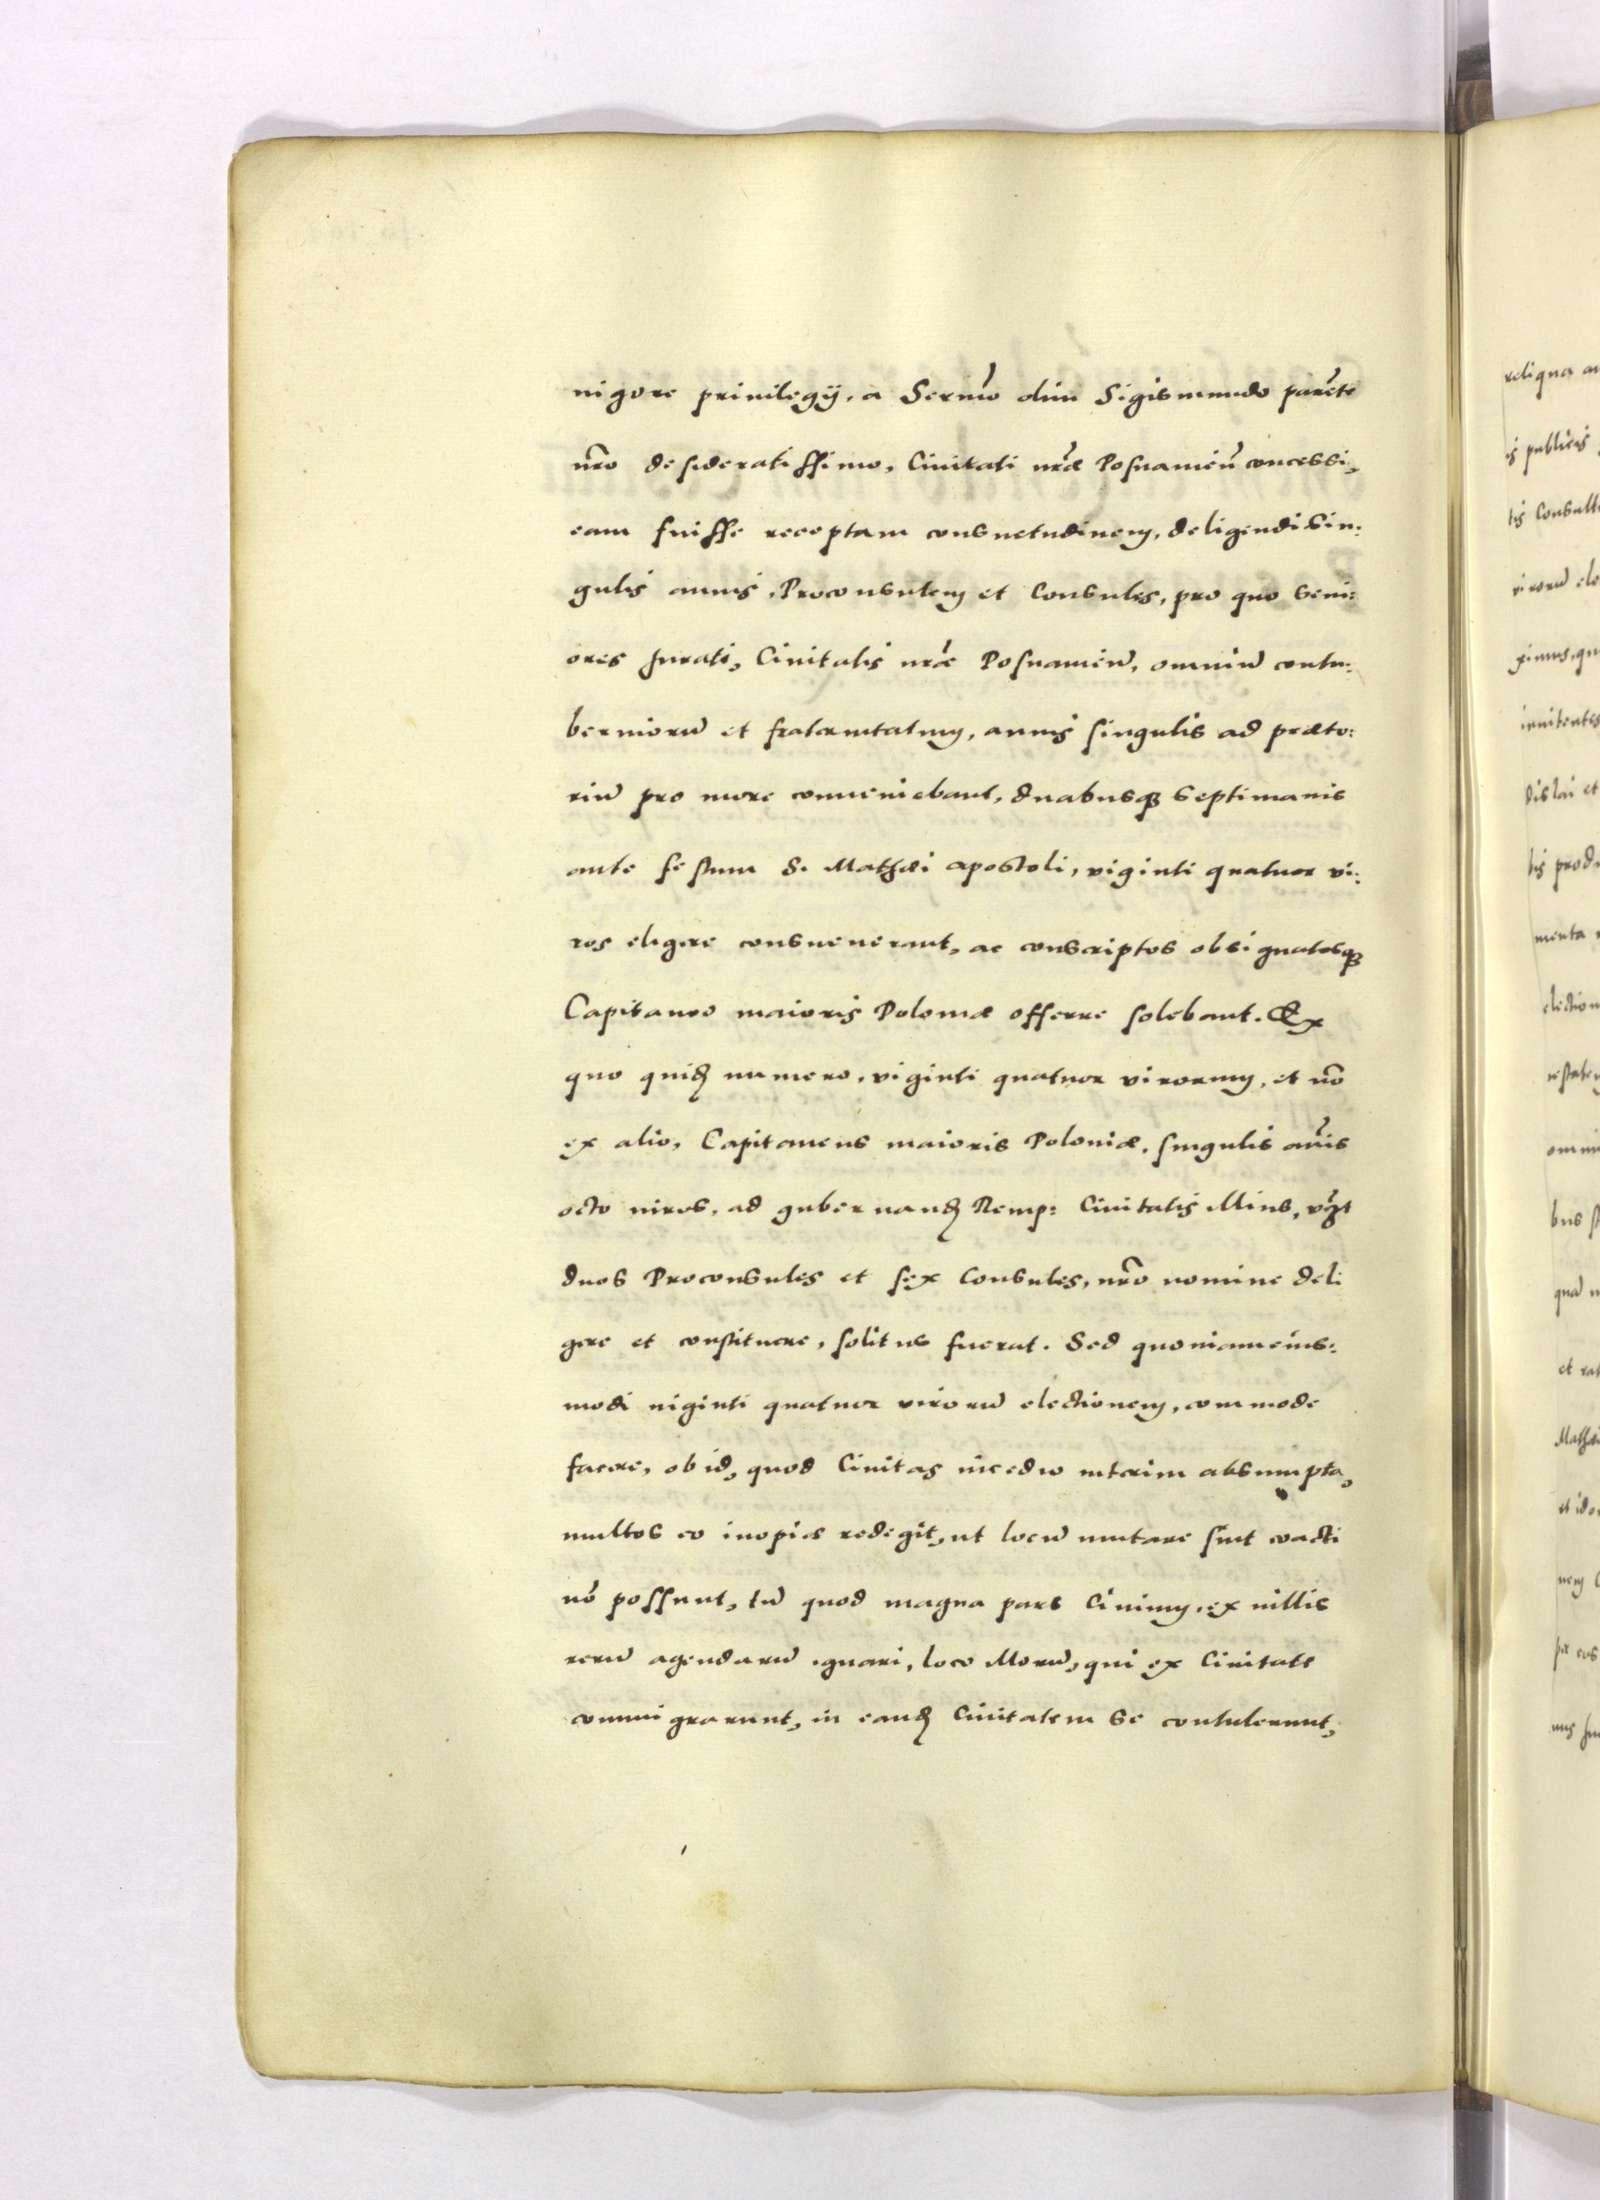 vigore privilegÿ, a Sermo̅ olim Sigismundo pare̅te
nr̅o desideratissimo, Civitati nr̅æ Posnamien̅ concessi,
eam fuisse receptam consuetudinem, deligendi sin:
gulis annis, Proconsulem et Consules, pro quo seni:
ores Jurati, Civitatis nr̅æ Posnamien̅, omniu̅ contu:
bernioru̅ et fraternitatum, annis singulis ad præto:
riu̅ pro more conveniebant, duabusq̨ septimanis
ante festum S. Mathæi apostoli, viginti quatuor vi:
ros eligere consueverant, ac conscriptos obsignatosq̨
Capitaneo maioris Poloniæ offerre solebant. Ex
quo quid̨ numero, viginti quatuor virorum, et no̅
ex alio, Capitaneus maioris Poloniæ, singulis an̅is
octo viros, ad gubernand̨ Remp: Civitatis illius, vz̅t
duos Proconsules et sex Consules, nr̅o nomine deli
gere et constituere, solitus fuerat. Sed quoniam eius:
modi viginti quatuor viroru̅ electionem, commode
facere, ob id, quod Civitas incedio interim absumpta,
multos eo inopiæ redegit, ut locu̅ mutare sint coacti
no̅ possunt, tu̅ quod magna pars Civium, ex villis
reru̅ agendaru̅ ignari, loco illoru̅, qui ex Civitate
commigrarunt, in eand̨ Civitatem se contulerunt,
reliqua
is publicis
viroru̅
ximus, qu
innitentes
dislai et
tis prod
menta
election
restate
omni
bus
qua̅
et rat
Mathæi
et ido
nem
per eos